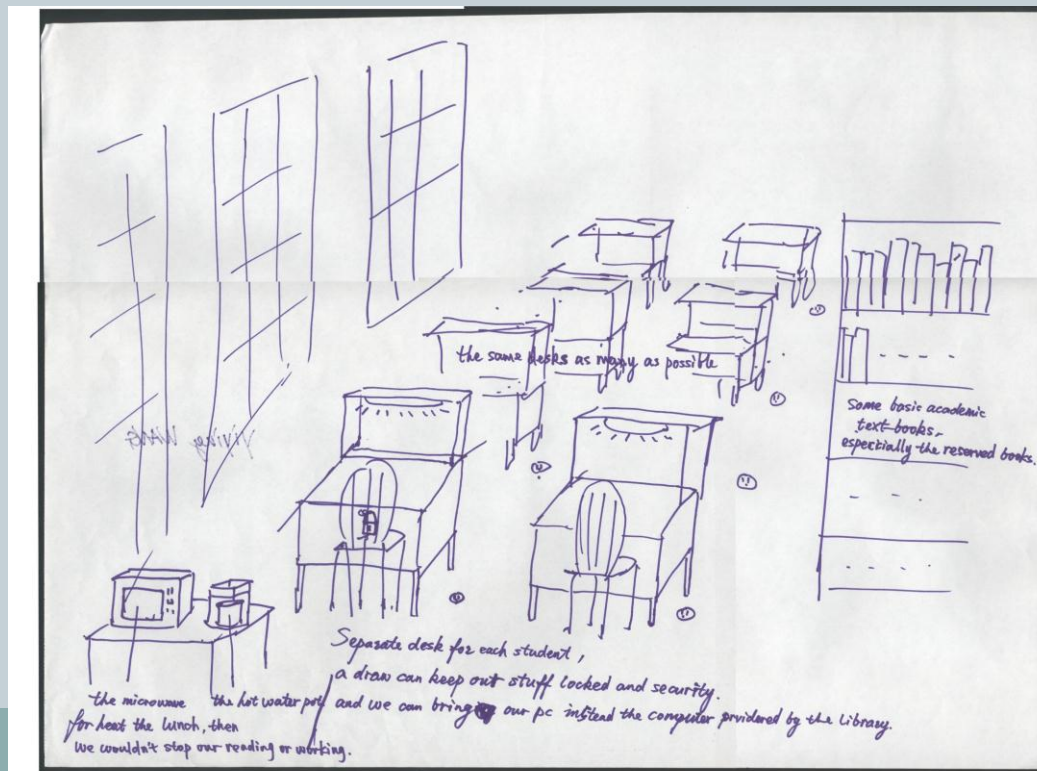 the same desks as many as possible
Some basic academic
text-books,
especially the reserved books.
Separate desk for each student,
a draw can keep our stuff locked and security.
and we can bring our pc instead the computer providered by the Library.
the microwave
for heat the lunch, then
we wouldn't stop our reading or working.
the hot water pot